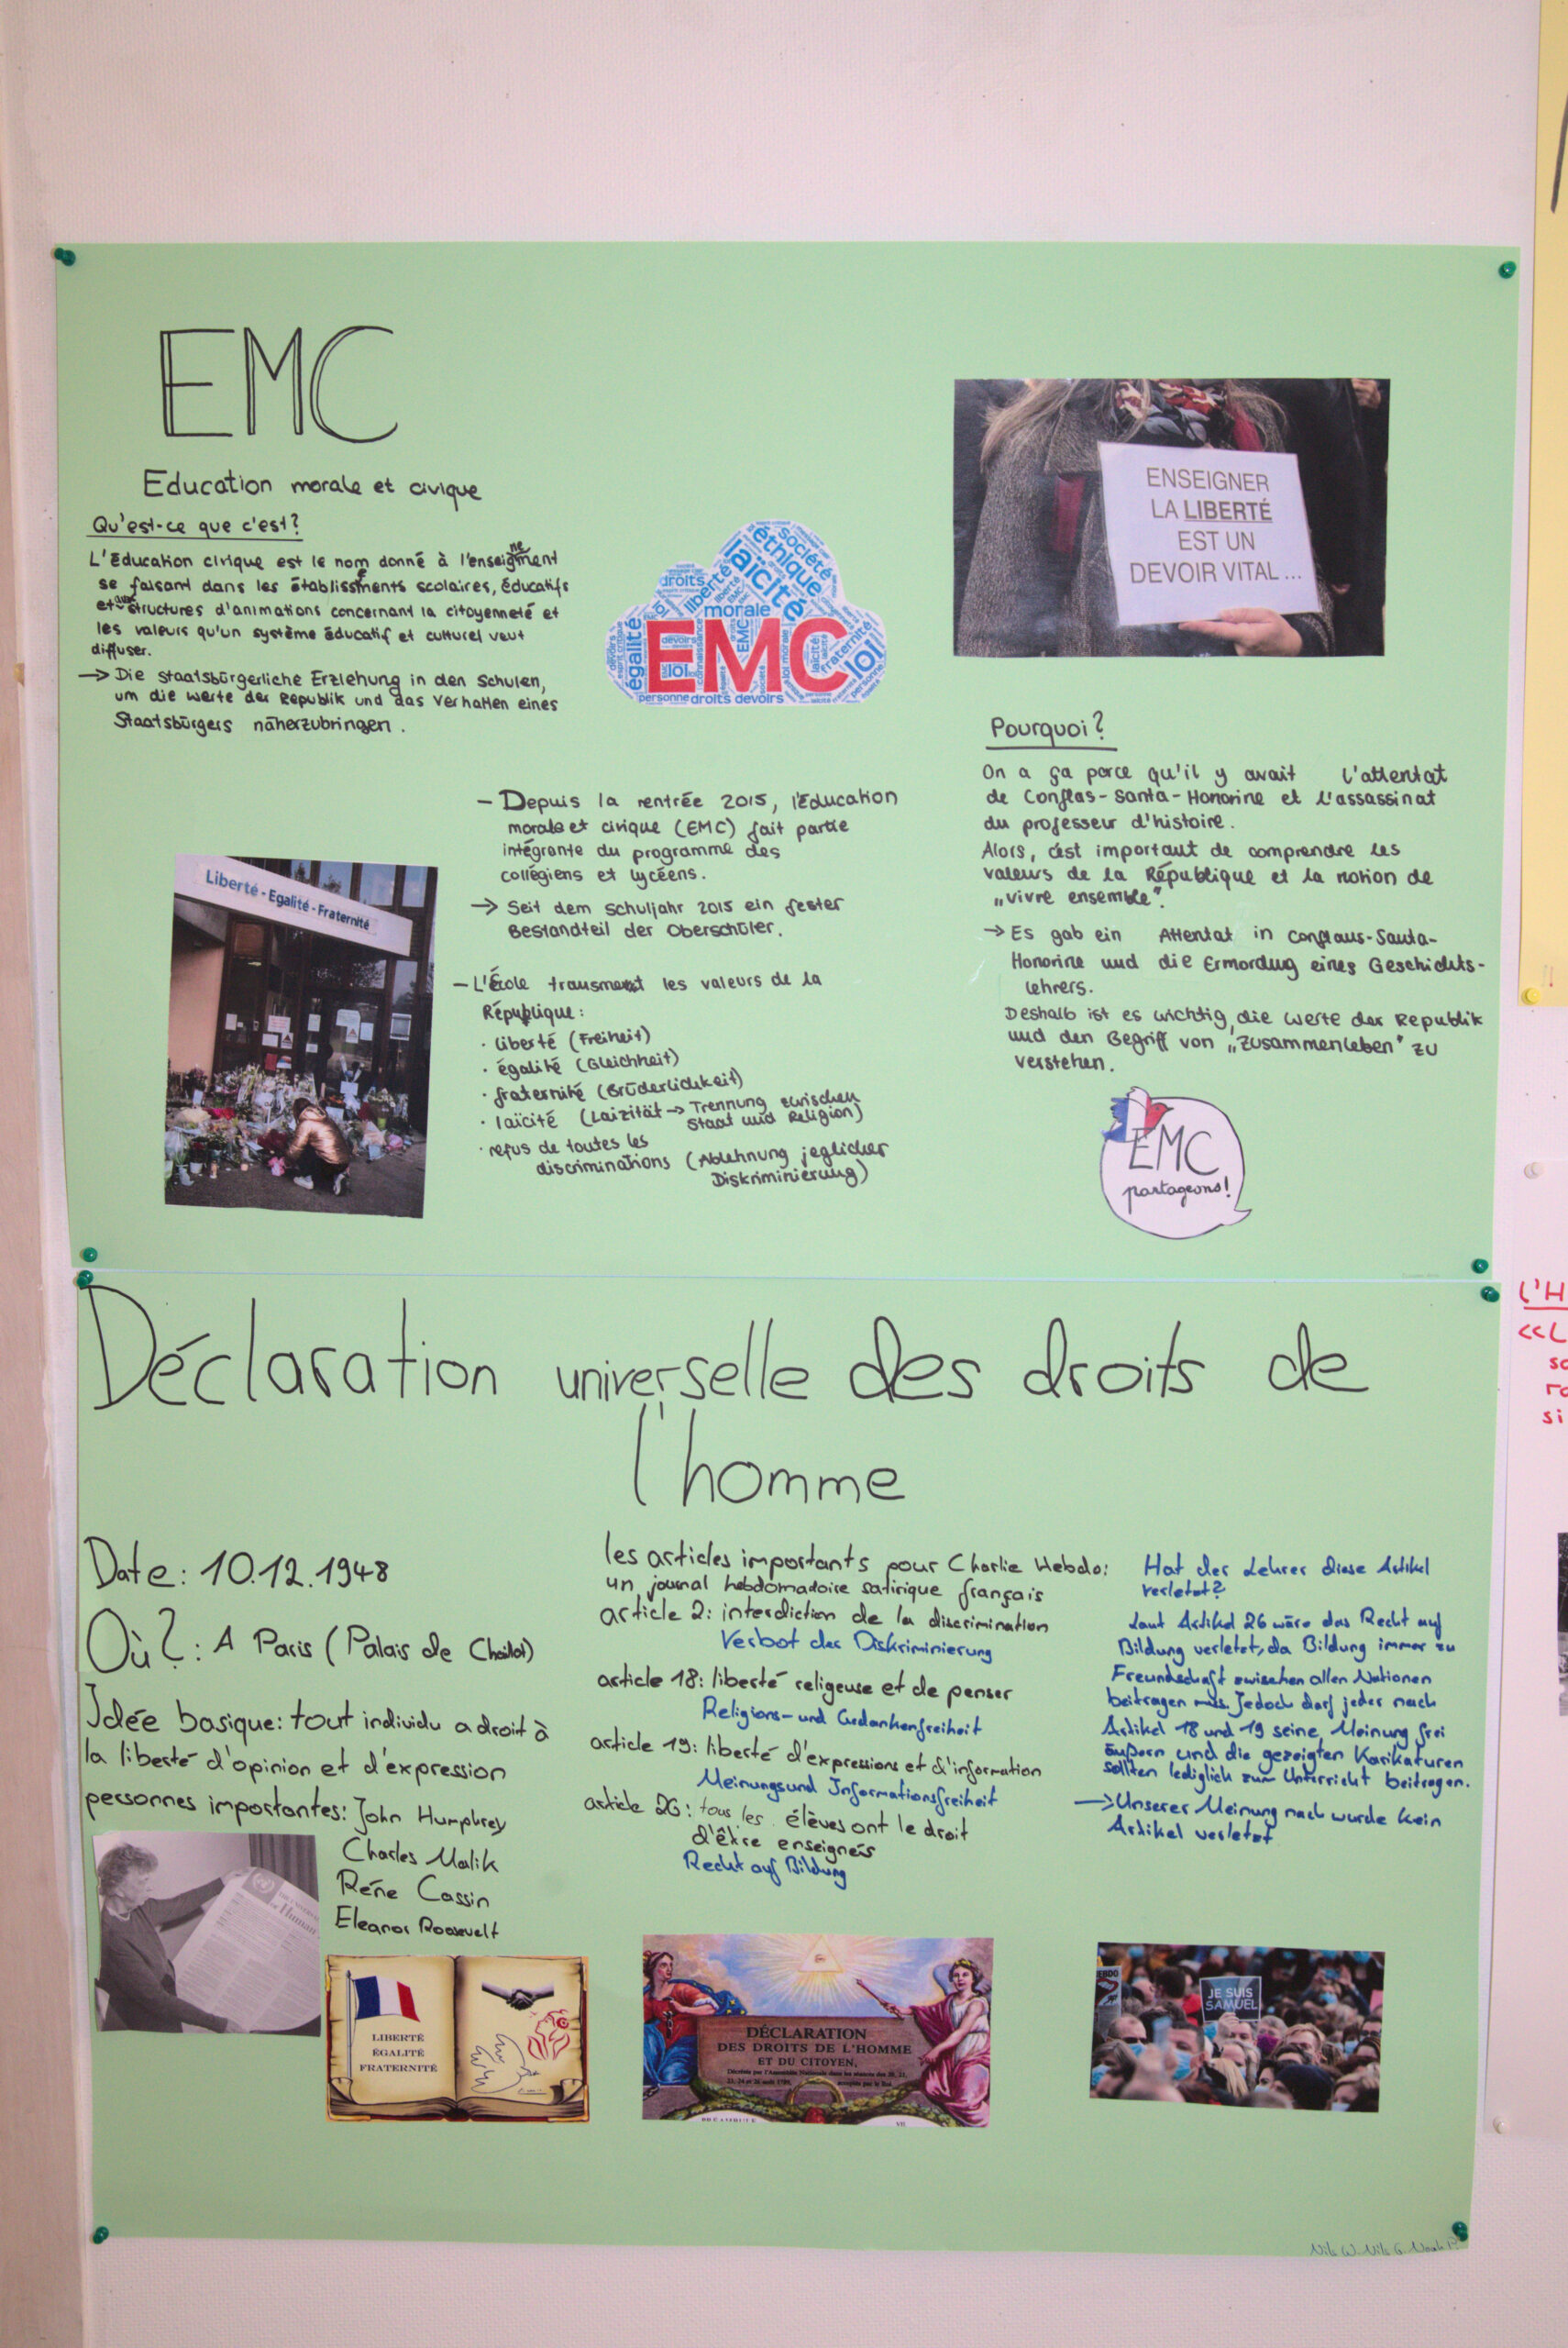 EMC
Education morale et civique
Qu'est-ce que c'est?
L'Éducation civique est le nom donné à l'enseignement
se faisant dans les établissements scolaires, éducatifs
et aux structures d'animations concernant la citoyenneté et
les valeurs qu'un système éducatif et culturel veut
diffuser.
→ Die staatsbürgerliche Erziehung in den Schulen,
um die Werte der Republik und das Verhalten eines
Staatsbürgers näherzubringen.
droits
liberté
laïcité
éthique
société
morale
égalité
EMC
loi
fraternité
loi
personne droits devoirs
ENSEIGNER
LA LIBERTÉ
EST UN
DEVOIR VITAL ...
Liberté - Egalité - Fraternité
- Depuis la rentrée 2015, l'Éducation
morale et civique (EMC) fait partie
intégrante du programme des
collégiens et lycéens.
→ Seit dem Schuljahr 2015 ein fester
Bestandteil der Oberschüler.
- L'École transmet les valeurs de la
République:
· liberté (Freiheit)
· égalité (Gleichheit)
· fraternité (Brüderlichkeit)
· laïcité (Laizität → Trennung zwischen
Staat und Religion)
· refus de toutes les
discriminations (Ablehnung jeglicher
Diskriminierung)
Pourquoi?
On a ça parce qu'il y avait l'attentat
de Conflas-Santa-Honorine et l'assassinat
du professeur d'histoire.
Alors, c'est important de comprendre les
valeurs de la République et la notion de
„vivre ensemble".
→ Es gab ein Attentat in Conflaus-Santa-
Honorine und die Ermordug eines Geschichts-
lehrers.
Deshalb ist es wichtig, die Werte der Republik
und den Begriff von „Zusammenleben" zu
verstehen.
EMC
partageons!
Déclaration universelle des droits de
l'homme
Date: 10.12.1948
Où?: A Paris (Palais de Chaillot)
Idée basique: tout individu a droit à
la liberté d'opinion et d'expression
personnes importantes: John Humphrey
Charles Malik
Réne Cassin
Eleanor Roosevelt
les articles importants pour Charlie Hebdo:
un journal hebdomadaire satirique français
article 2: interdiction de la discrimination
Verbot der Diskriminierung
article 18: liberté religeuse et de penser
Religions- und Gedankenfreiheit
article 19: liberté d'expressions et d'information
Meinungsund Informationsfreiheit
article 26: tous les élèves ont le droit
d'être enseignés
Recht auf Bildung
Hat der Lehrer diese Artikel
verletzt?
Laut Artikel 26 wäre das Recht auf
Bildung verletzt, da Bildung immer zu
Freundschaft zwischen allen Nationen
beitragen Jedoch darf jeder nach
Artikel 18 und 19 seine Meinung frei
äußern und die gezeigten Karikaturen
sollten lediglich zum Unterricht beitragen.
→ Unserer Meinung nach wurde kein
Artikel verletzt
LIBERTÉ
ÉGALITÉ
FRATERNITÉ
DÉCLARATION
DES DROITS DE L'HOMME
ET DU CITOYEN,
JE SUIS
SAMUEL
L'H
<<L
so
si